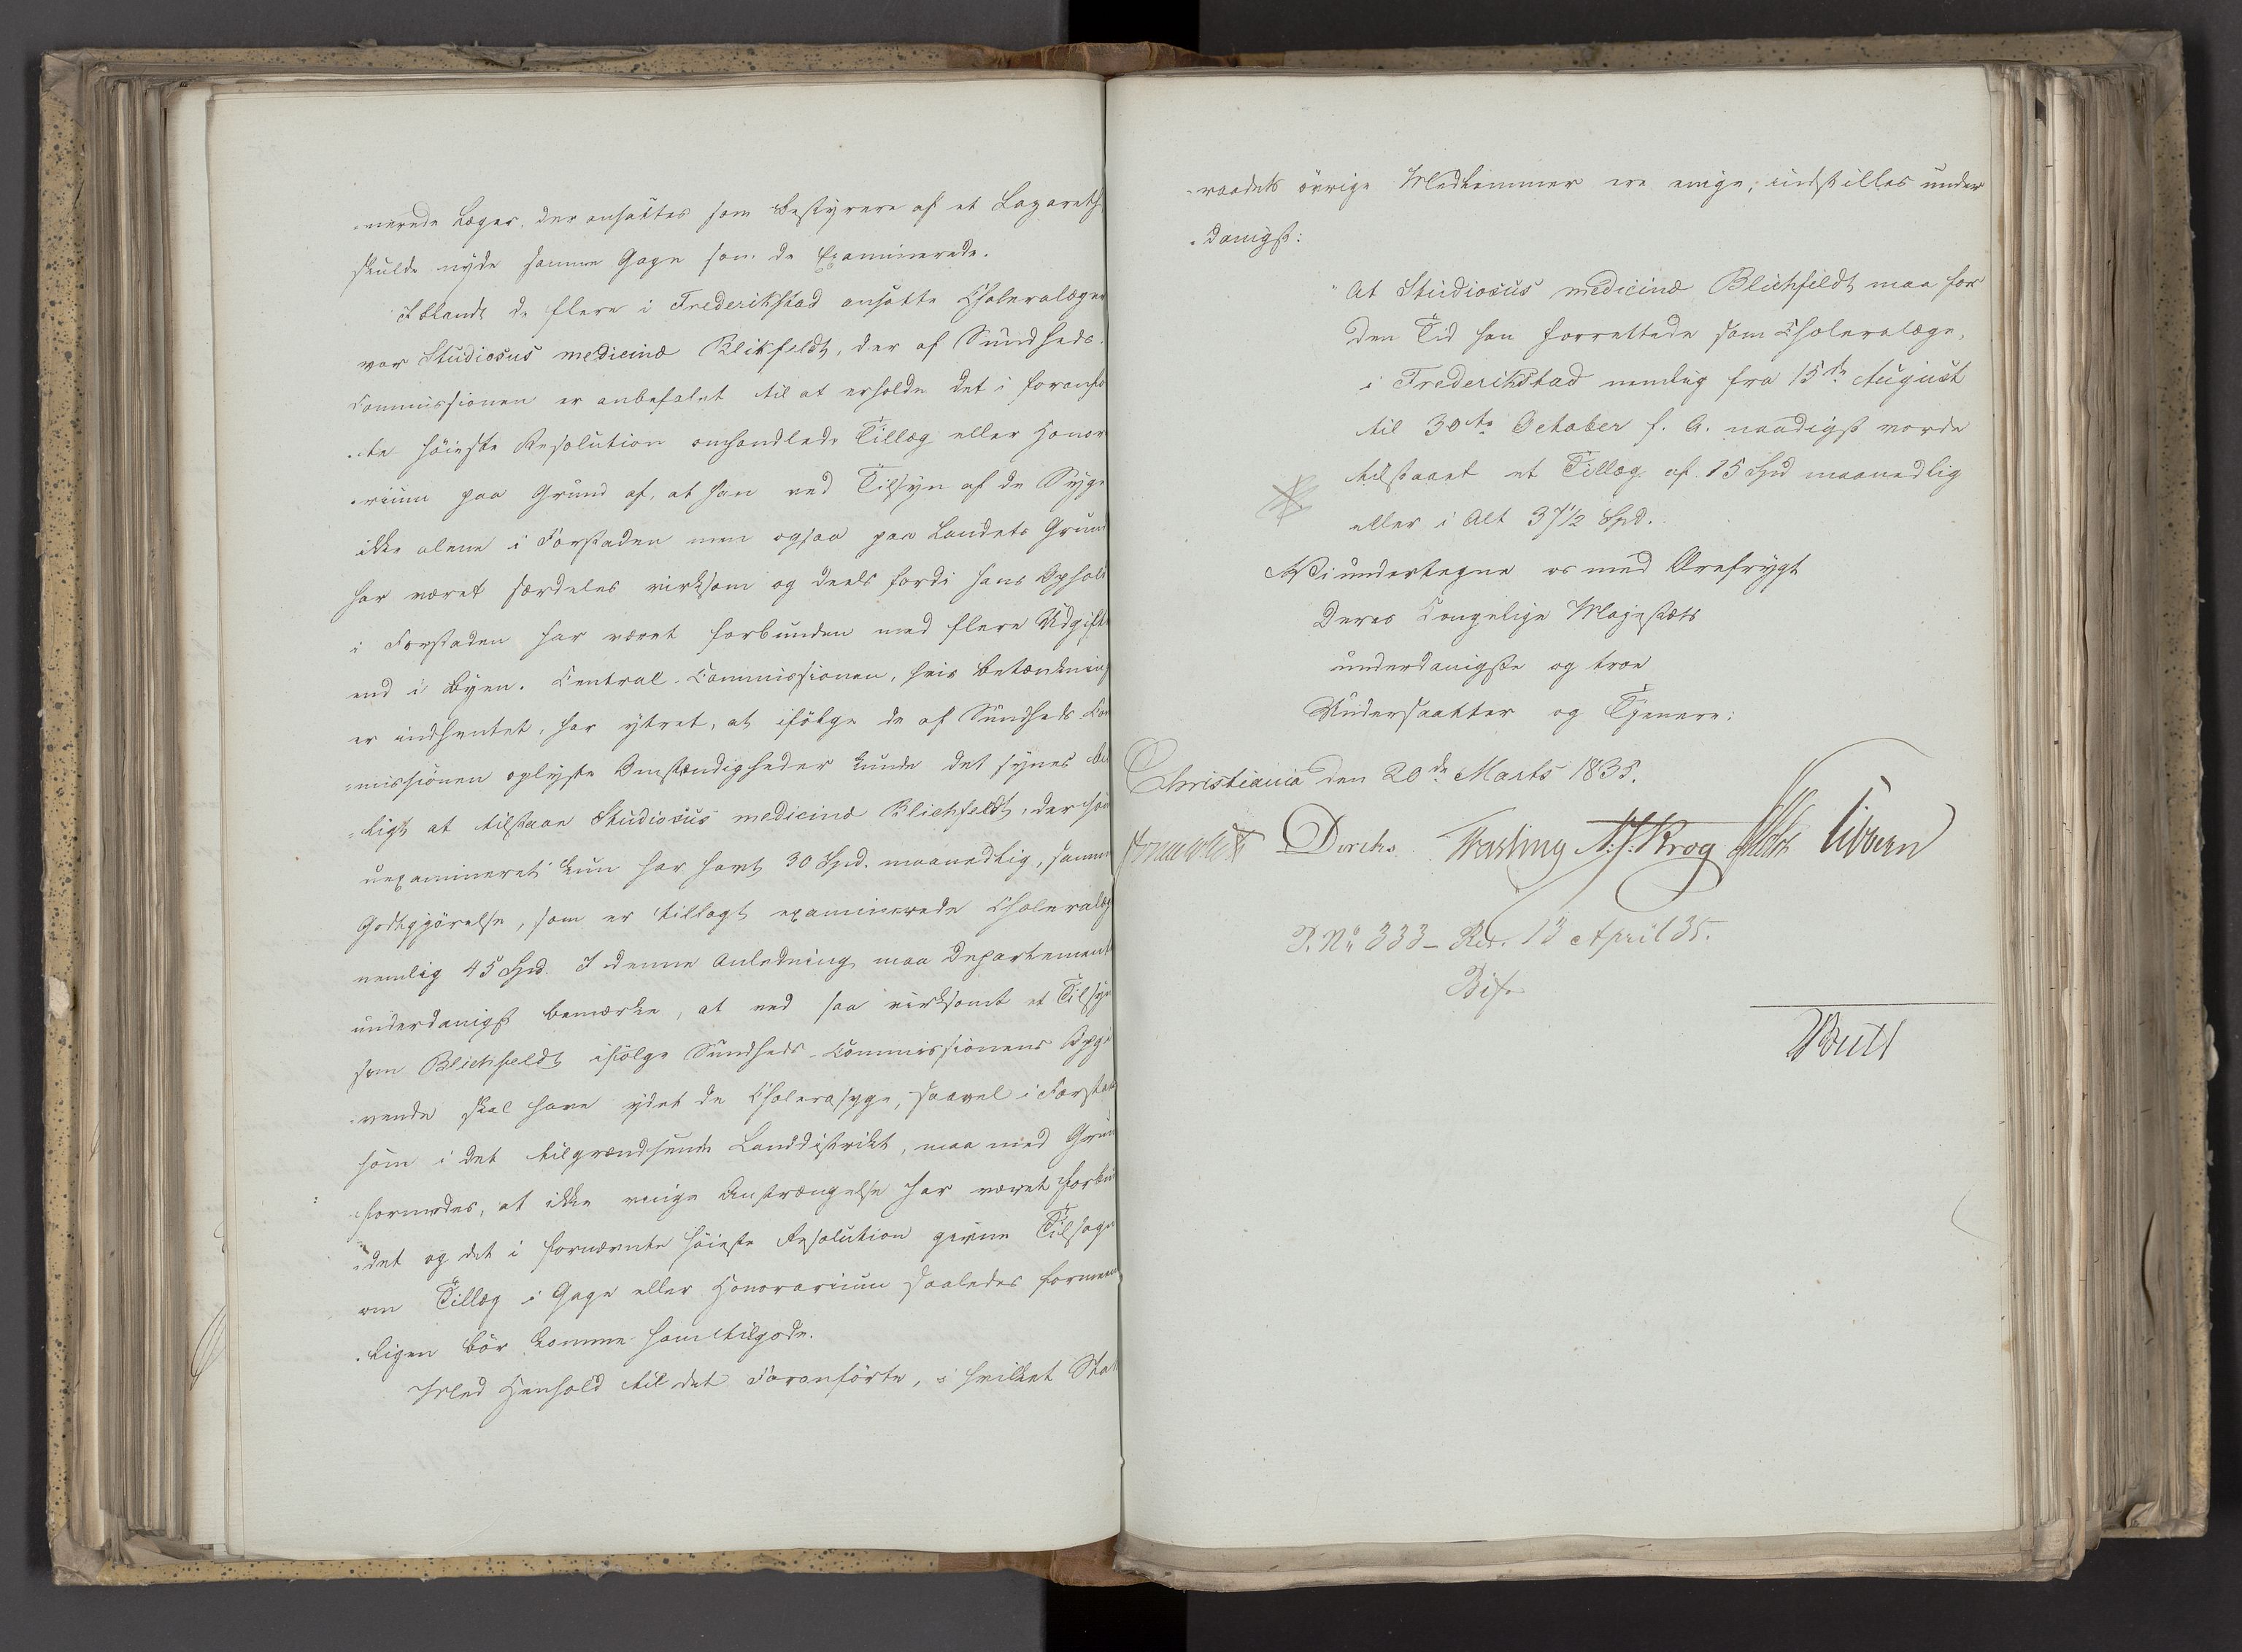 -nerede Læger, der ansattes som Bestyrere af et Lazareth
skulde nyde samme Gage som de Examinerede.
Iblandt de flere i Frederikstad ansatte Choleralæger
var Studiosus medicinæ Blikfeldt, der af Sundheds-
Commissionen er anbefalet til at erholde det i foranfø
-te höieste Resolution omhandlede Tillæg eller Honor
-rium paa Grund af, at han ved Tilsyn af de Syge
ikke alene i Forstaden men ogsaa paa Landets Grund
har været særdeles virksom og deels fordi hans Ophold
i Forstaden har været forbunden med flere Udgifte
end i Byen. Central-Commissionen, hvis Betænkning
er indhentet, har ytret, at ifölge de af Sundheds Com
-missionen oplyste Omstændigheder kunde det synes bil
-ligt at tilstaae Studiosus medicinæ Blichfeldt, der som
uexamineret kun har havt 30 Spd. maanedlig, samme
Godtgjörelse, som er tillagt examinerede Choleralæg
nemlig 45 Spd. I denne Anledning maa Departement
underdanigst bemærke, at ved saa virksomt et Tilsyn
som Blichfeldt ifölge Sundheds-Commissionens Opgi
-vende skal have ydet de Cholerasyge, saavel i Forstad
som i det tilgrændsende Landdistrikt, maa med Grun
formodes, at ikke ringe Anstrængelse har været forbu
-det og det i fornævnte höieste Resolution givne Tilsagn
om Tillæg i Gage eller Honorarium saaledes formeen
-ligen bör komme ham tilgode.
Med Henhold til det Foranförte, i hvilket Stat
-raadets övrige Medlemmer ere enige, indstilles under
-danigst:
"At Studiosus medicinæ Blichfeldt maa for
den Tid han forrettede som Choleralæge,
i Frederikstad nemlig fra 15de August
til 30te October f. A. naadigst vorde
tilstaaet et Tillæg af 15 Spd maanedlig
eller i Alt 37 1/2 Spd.
Vi undertegne os med Ærefrygt
Deres Kongelige Majestæts
underdanigste og troe
Undersaatter og Tjenere:
Christiania den 20de Marts 1835.
Diriks. Fasting N. J. Krog Holst Vibern
P. No 333 - Res. 13 April 35.
Bif.